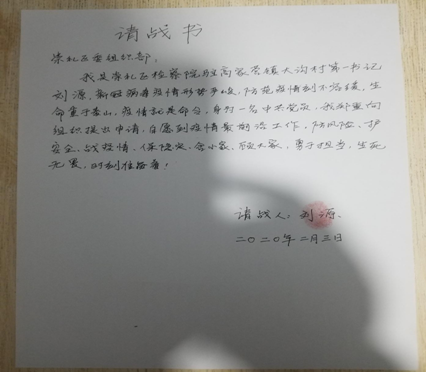 请战书
滦州区委组织部：
我是滦州区检察院驻高家营镇大沟村第一书记
刘源，新冠病毒疫情形势严峻，防范疫情刻不容缓，生
命重于泰山，疫情就是命令，身为一名中共党员，我郑重向
组织提出申请，自愿到疫情最前沿工作，防风险、护
安全、战疫情、保稳定，舍小家，顾大家，勇于担当，生死
无畏，时刻准备着！
请战人：刘源
二〇二〇年二月三日